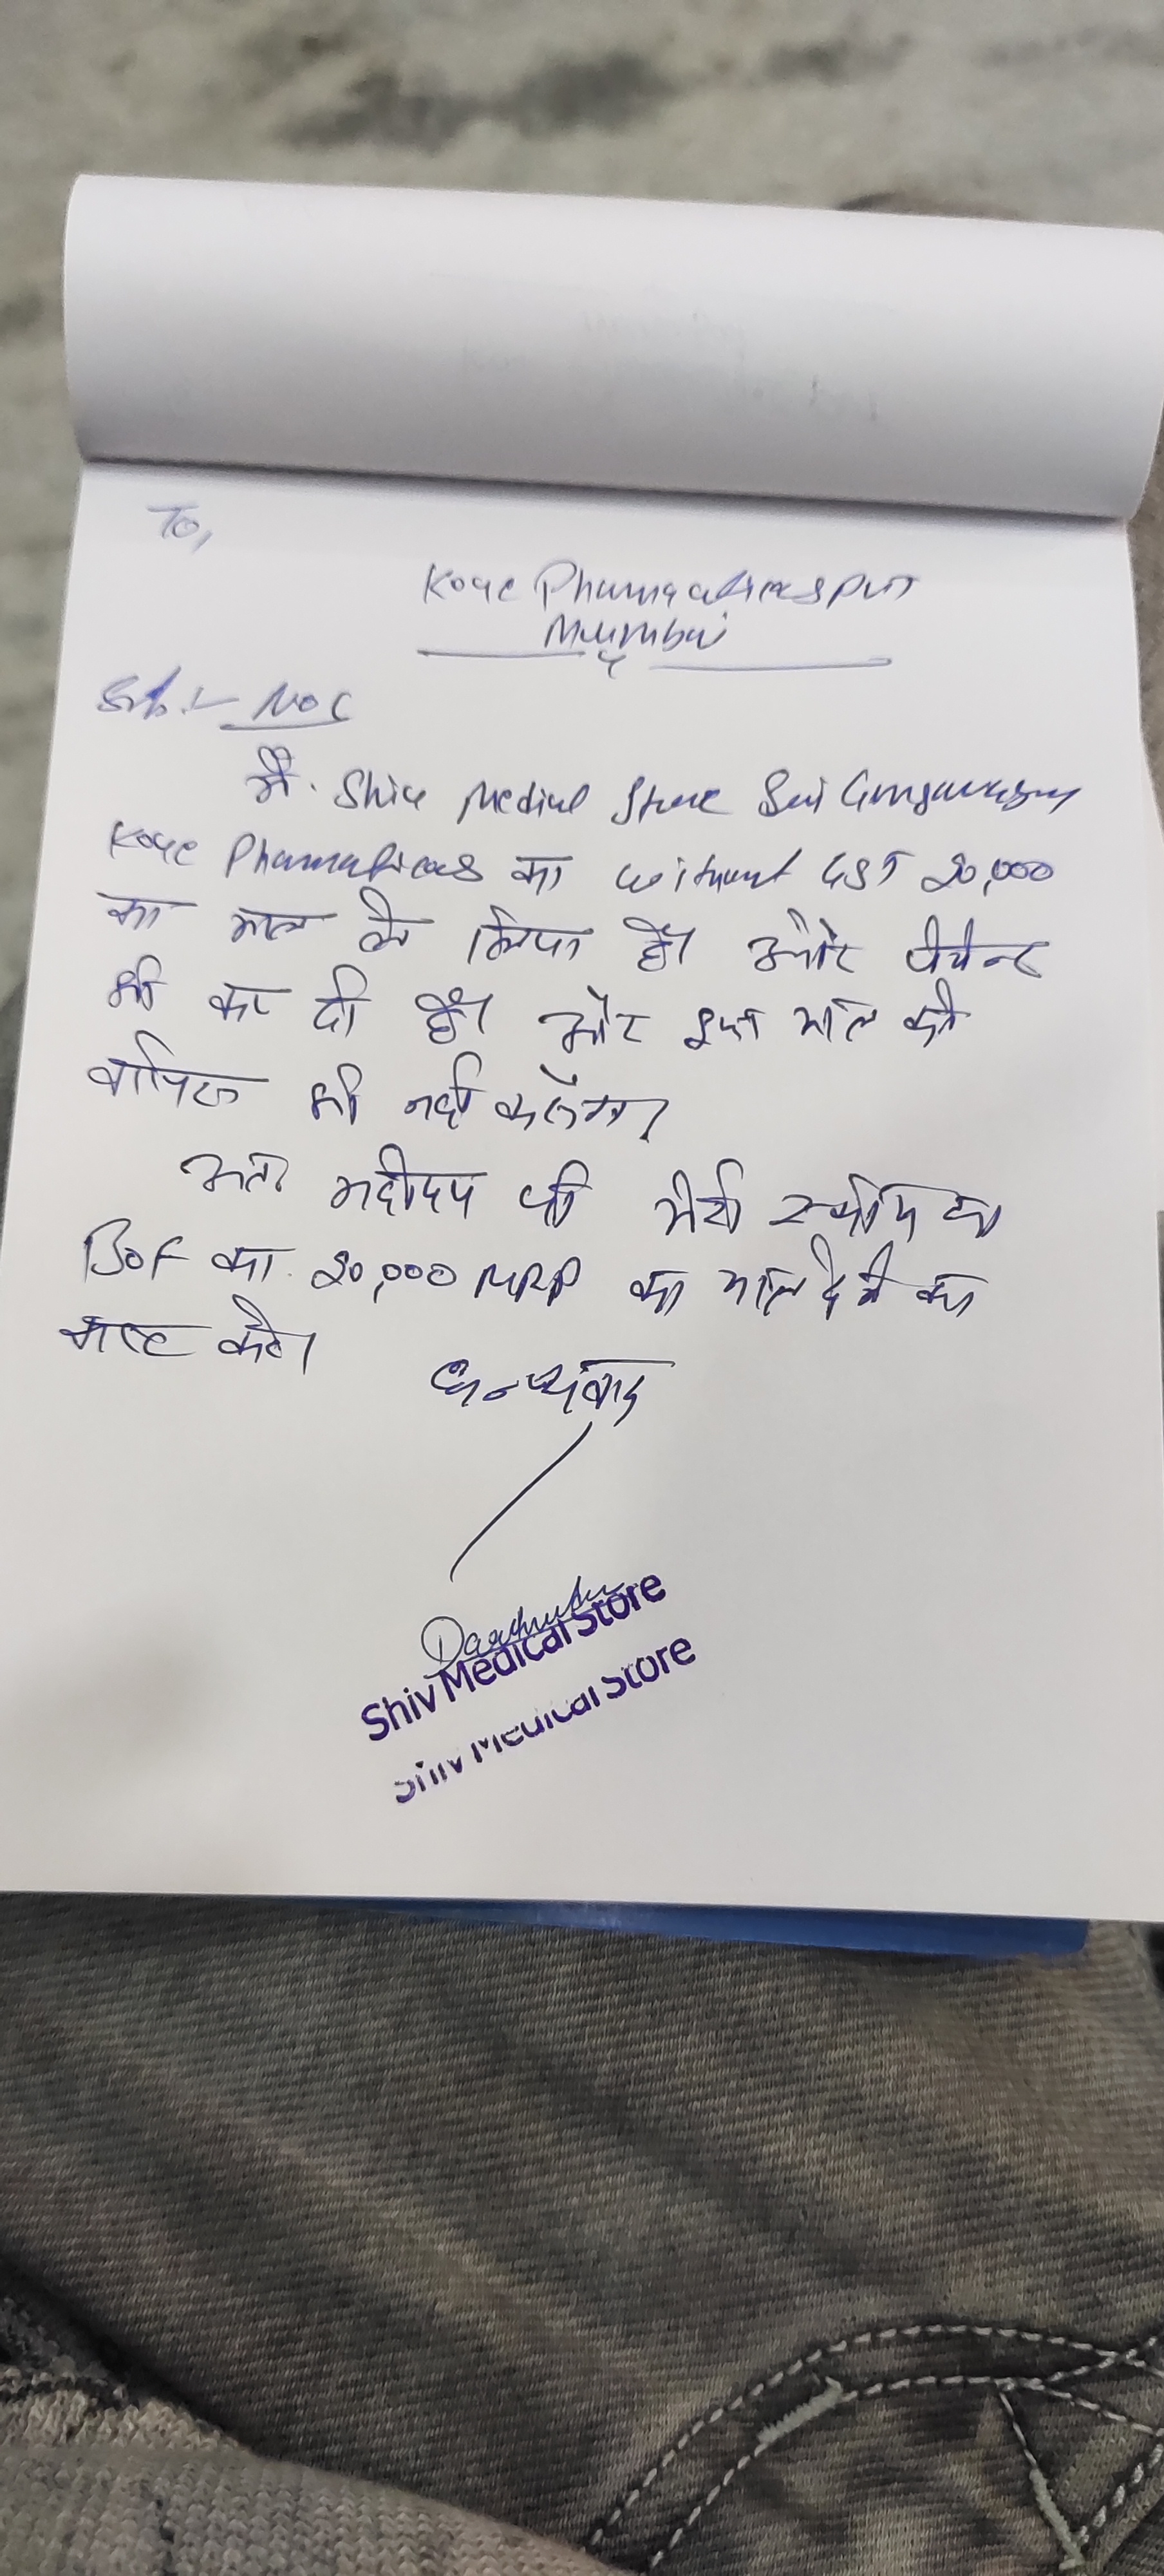 To,
Koye Pharmaceuticals Pvt
Mumbai
Sub :- NOC
मैं. Shiv Medical Store Sri Ganganagar
Koye Pharmaticals का without GST 20,000
का माल ले लिया है। और पेमेन्ट
भी कर दी है। और इस माल को
वापिस भी नहीं करूंगा।
अतः महोदय जी मेरी का
का 20,000 MRP का माल देने का
कष्ट करे।
धन्यवाद
Shiv Medical Store
Shiv Medical Store